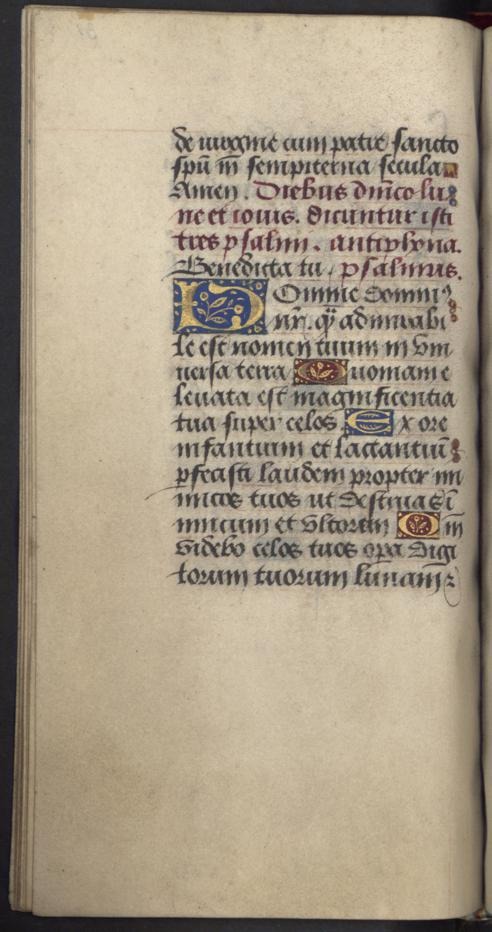 de virgine cum patre sancto
spũ in sempiterna secula
Amen. Diebus dñico lu
ne et iouis. dicuntur isti
tres psalmi. antiphona.
Benedicta tu. psalmus.
Domine domin⁹
nr̃. q̃ admirabi
le est nomen tuum in vni
uersa terra Quoniam e
leuata est magnificentia
tua super celos Ex ore
infantium et lactantiũ
pfecisti laudem propter ini
micos tuos ut destruas ĩ
imicum et vltorem Qm̃
videbo celos tuos opa digi
torum tuorum lunam ⁊